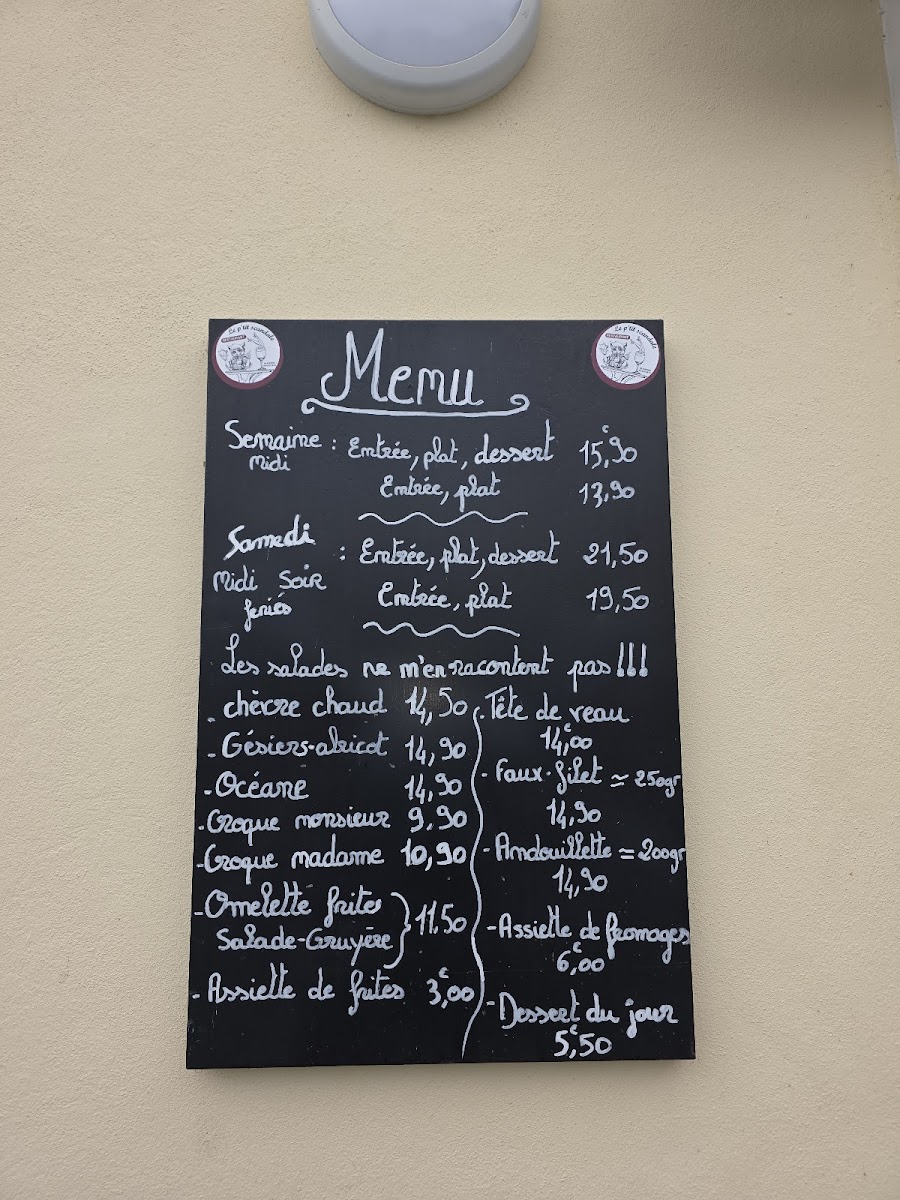 Le p'tit scandale
RESTAURANT
Le p'tit scandale
RESTAURANT
Menu
Semaine : Entrée, plat, dessert 15,€90
Midi
Entrée, plat 13,90
Samedi : Entrée, plat, dessert 21,50
Midi Soir
feriés
Entrée, plat 19,50
Les salades ne m'en racontent pas!!!
- chèvre chaud 14,50
- Gésiers-abricot 14,90
- Océane 14,90
- Croque monsieur 9,90
- Croque madame 10,90
- Omelette frites
Salade-Gruyère } 11.50
- Assiette de frites 3,€00
- Tête de veau
14,€00
- Faux-filet ≃ 250gr
14,90
- Andouillette = 200gr
14,90
- Assiette de fromages
6,€00
- Dessert du jour
5,€50